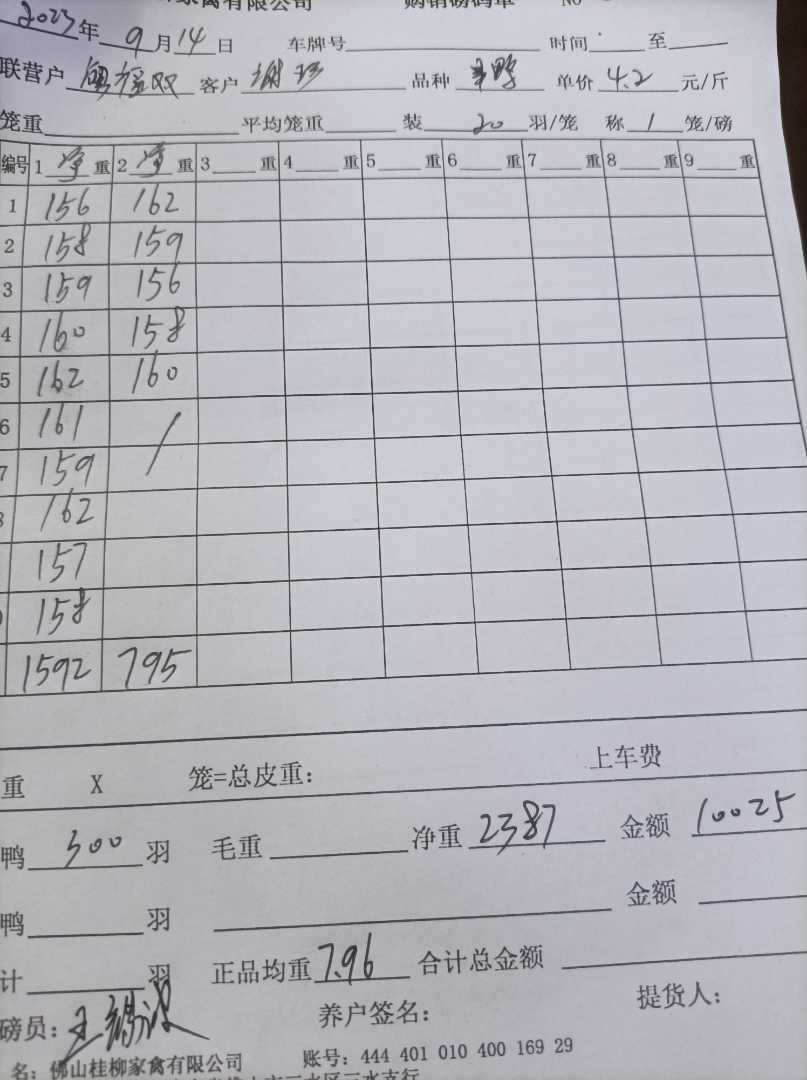 家禽有限公司 购销磅码单 NO
2023年 9月14日 车牌号 时间 至
联营户 客户 谢珍 品种 单价 4.2 元/斤
笼重 平均笼重 装 20 羽/笼 称 1 笼/磅
编号 1 净 重 2 净 重 3 重 4 重 5 重 6 重 7 重 8 重 9 重
1 156 162
2 158 159
3 159 156
4 160 158
5 162 160
6 161 /
7 159
8 162
157
158
1592 795
重 X 笼=总皮重: 上车费
鸭 300 羽 毛重 净重 2387 金额 10025
鸭 羽 金额
计 羽 正品均重 7.96 合计总金额
磅员: 养户签名: 提货人:
名: 佛山桂柳家禽有限公司 账号: 444 401 010 400 169 29